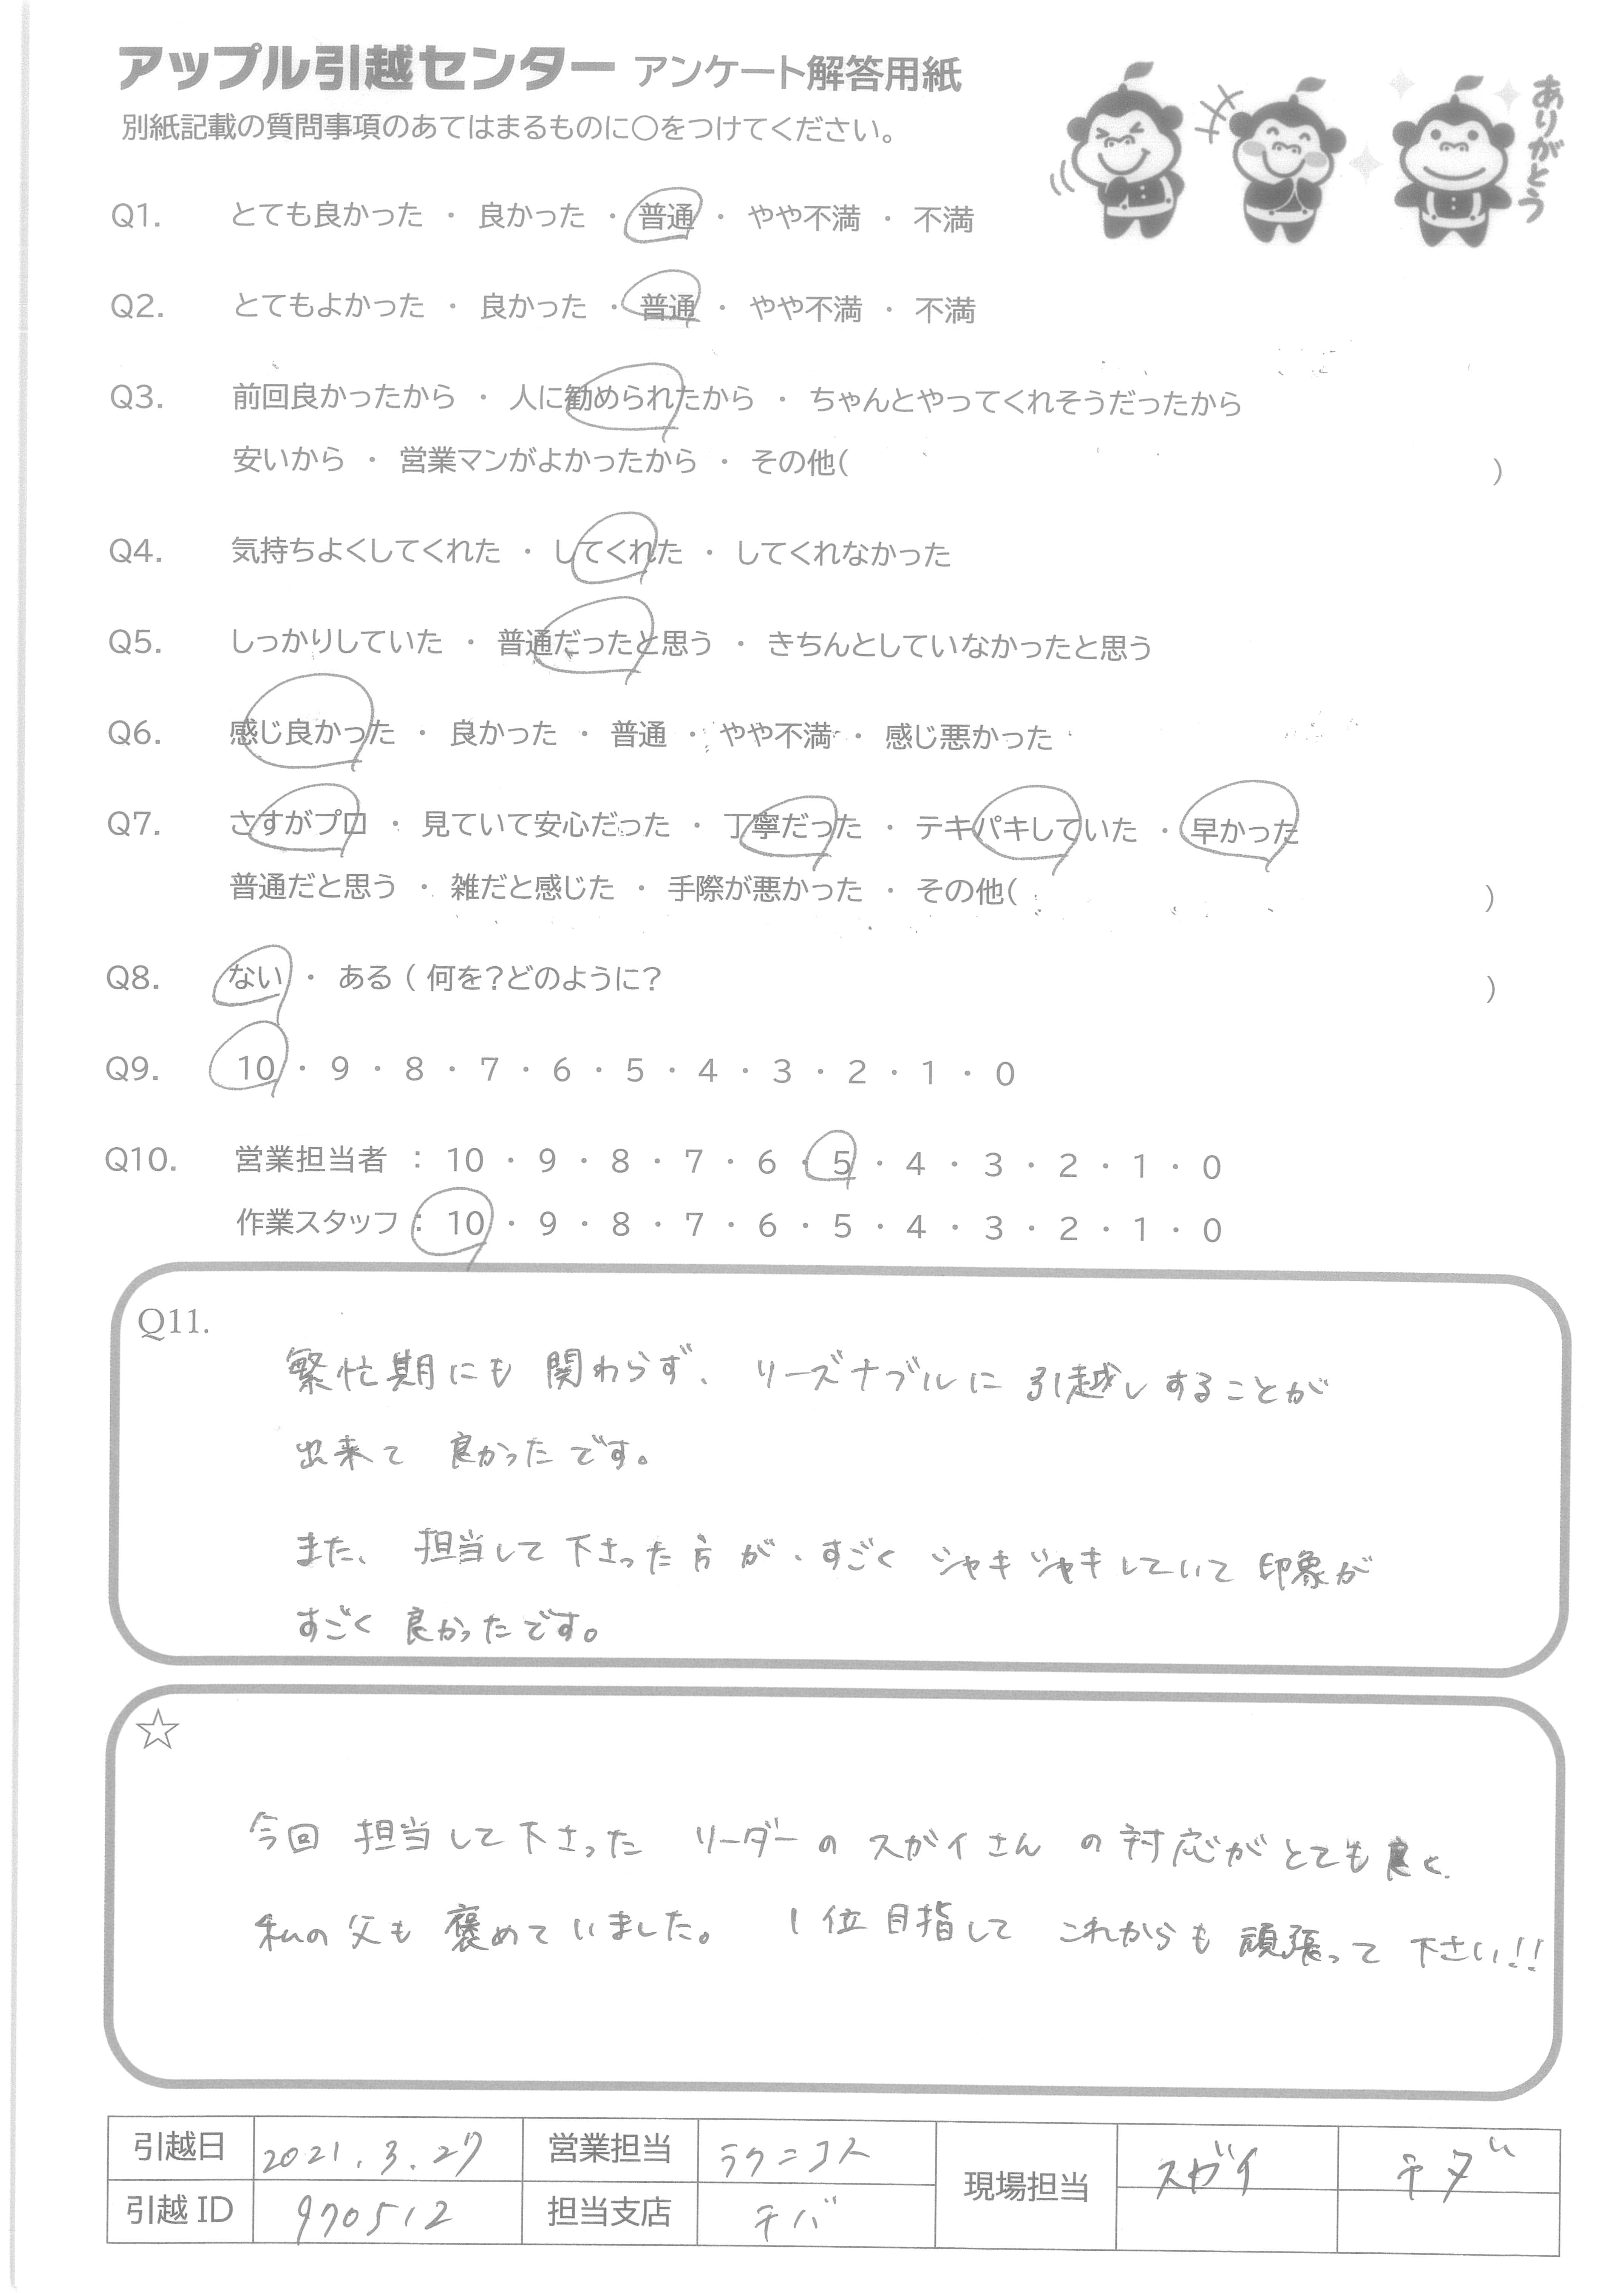 アップル引越センター アンケート解答用紙
ありがとう
別紙記載の質問事項のあてはまるものに○をつけてください。
Q1. とても良かった ・ 良かった ・ 普通 ・ やや不満 ・ 不満
Q2. とてもよかった ・ 良かった ・ 普通 ・ やや不満 ・ 不満
Q3. 前回良かったから ・ 人に勧められたから ・ ちゃんとやってくれそうだったから
安いから ・ 営業マンがよかったから ・ その他( )
Q4. 気持ちよくしてくれた ・ してくれた ・ してくれなかった
Q5. しっかりしていた ・ 普通だったと思う ・ きちんとしていなかったと思う
Q6. 感じ良かった ・ 良かった ・ 普通 ・ やや不満 ・ 感じ悪かった
Q7. さすがプロ ・ 見ていて安心だった ・ 丁寧だった ・ テキパキしていた ・ 早かった
普通だと思う ・ 雑だと感じた ・ 手際が悪かった ・ その他( )
Q8. ない ・ ある ( 何を?どのように? )
Q9. 10 ・ 9 ・ 8 ・ 7 ・ 6 ・ 5 ・ 4 ・ 3 ・ 2 ・ 1 ・ 0
Q10. 営業担当者 : 10 ・ 9 ・ 8 ・ 7 ・ 6 ・ 5 ・ 4 ・ 3 ・ 2 ・ 1 ・ 0
作業スタッフ : 10 ・ 9 ・ 8 ・ 7 ・ 6 ・ 5 ・ 4 ・ 3 ・ 2 ・ 1 ・ 0
Q11.
繁忙期にも関わらず、リーズナブルに引越しすることが
出来て 良かったです。
また、担当して下さった方が、すごくシャキシャキしていて印象が
すごく良かったです。
☆
今回 担当して下さった リーダーの スガイさん の対応がとても良く、
私の父も褒めていました。 1位目指して これからも頑張って下さい!!
引越日 2021.3.27 営業担当 ラクニコス 現場担当 スガイ チダ
引越ID 970512 担当支店 チバ